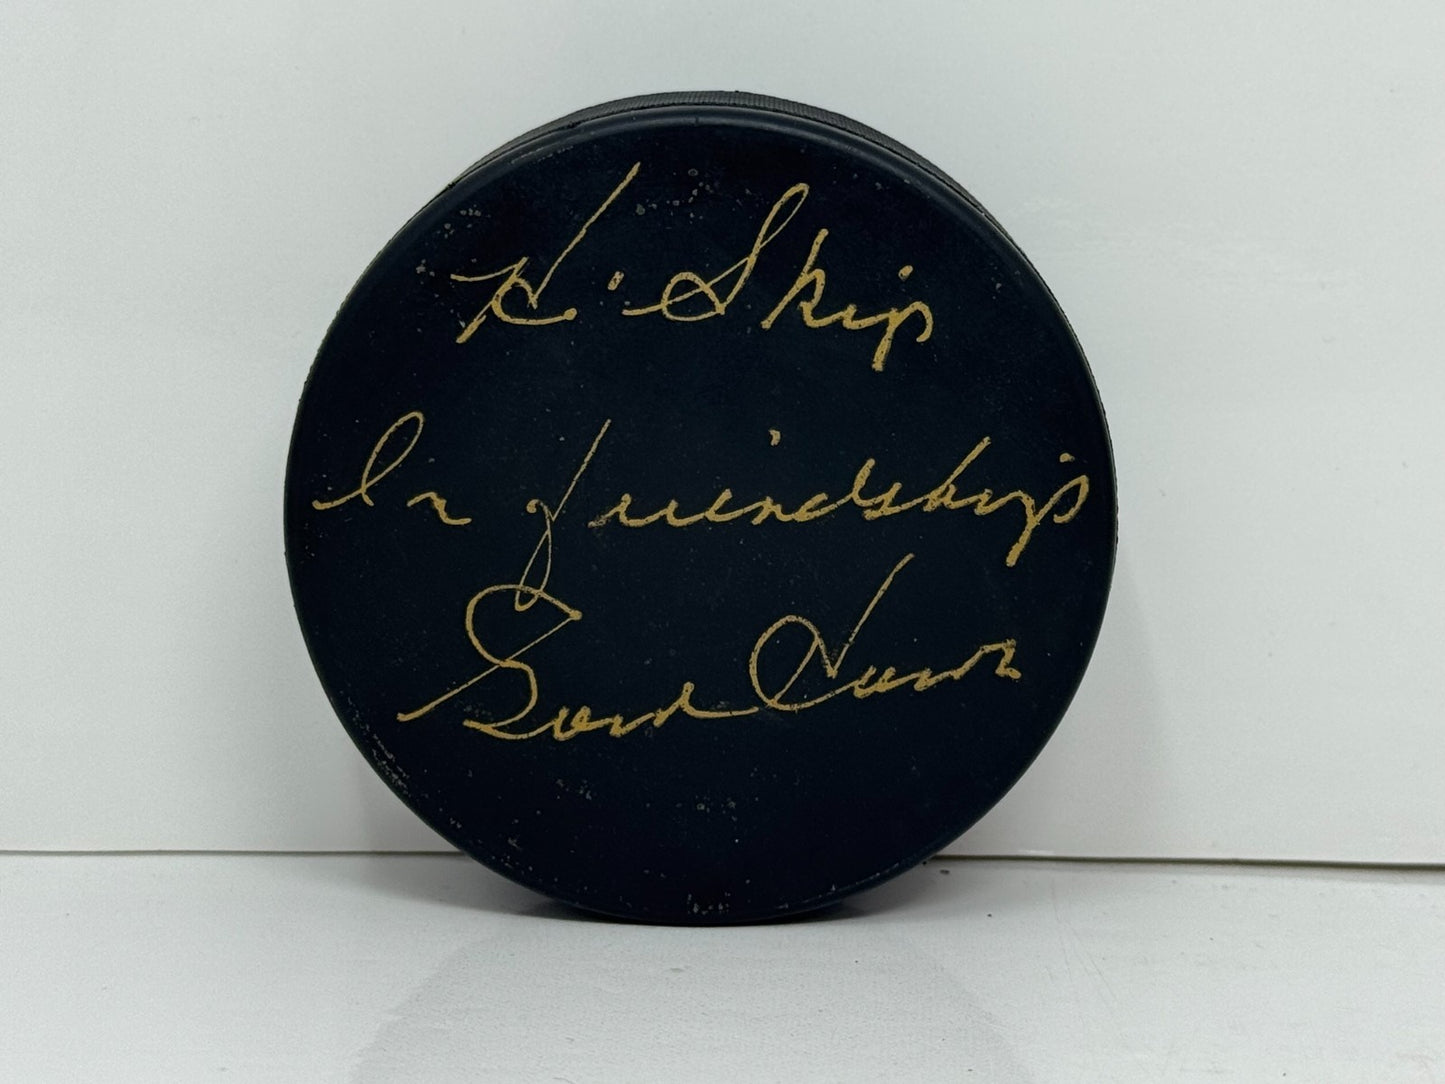 Hi Skip
In friendship
Gord Howe